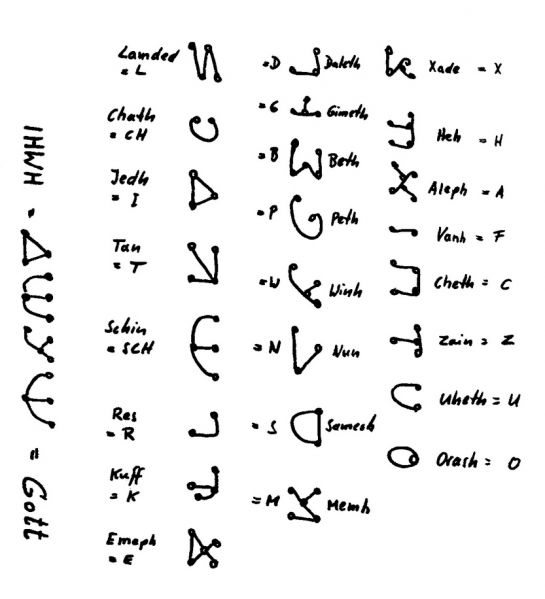 IHWH = = Gott
Lamded
= L
Chath
= CH
Jedh
= I
Tan
= T
Schin
= SCH
Res
= R
Kuff
= K
Emeph
= E
=D Daleth
=G Gimeth
=B Beth
=P Peth
=W Winh
=N Nun
=S Samech
=M Memh
Xade = X
Heh = H
Aleph = A
Vanh = F
Cheth = C
Zain = Z
Uheth = U
Orash = O